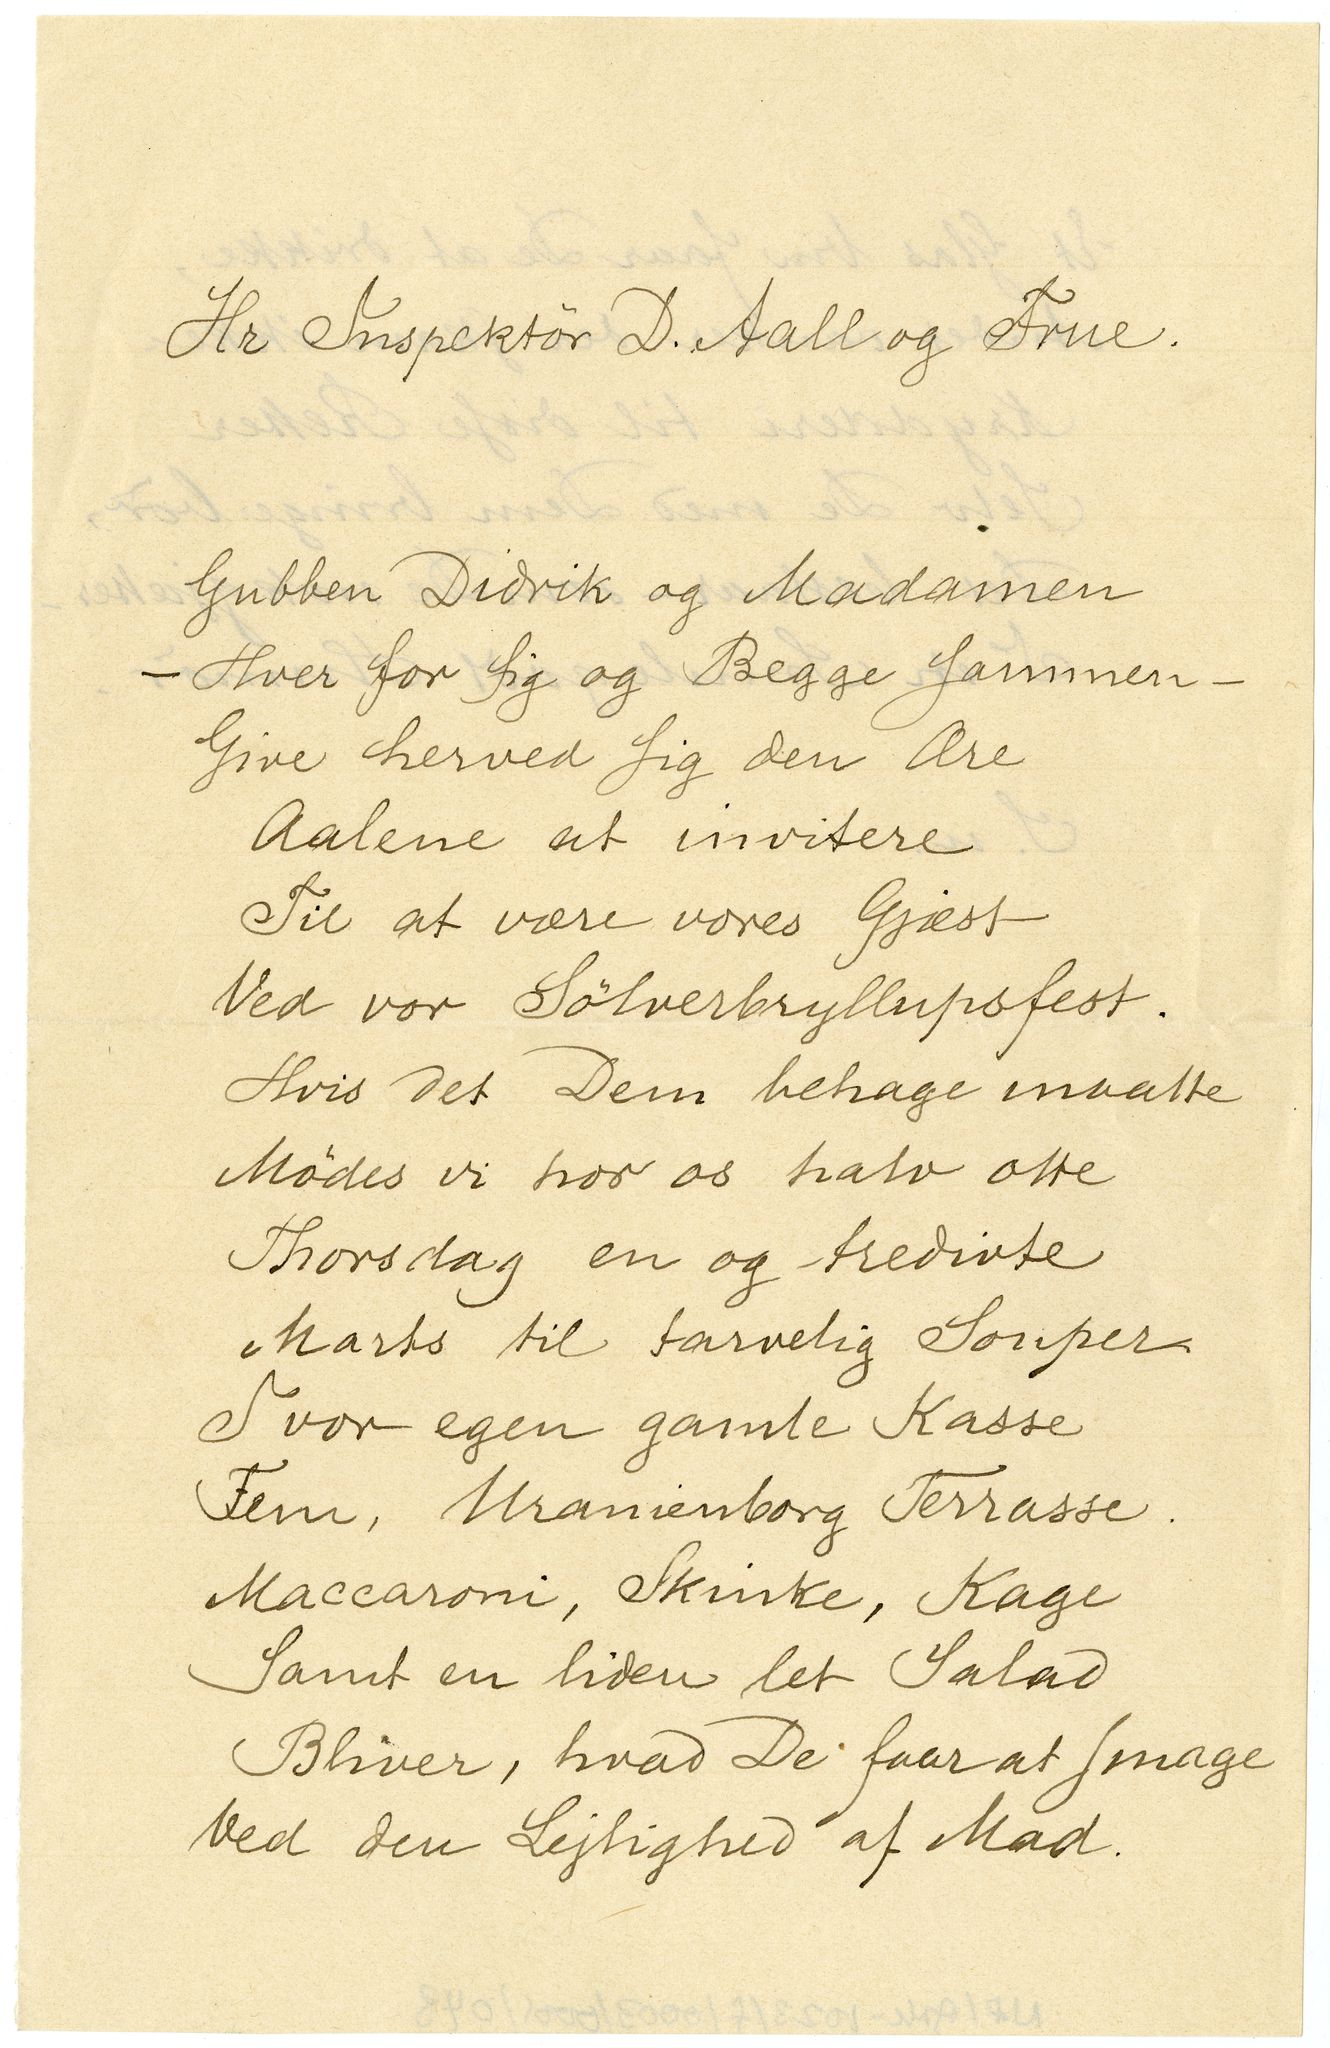 Hr Inspektör D. Aall og Frue.
Gubben Didrik og Madamen
– Hver for sig og Begge sammen –
Give herved sig den Ære
Aalene at invitere
Til at være vores Gjæst
Ved vor Sölverbryllupsfest.
Hvis det Dem behage maatte
Mödes vi hos os halv otte
Thorsdag en og tredivte
Marts til tarvelig Souper
I vor egen gamle Kasse
Fem, Uranienborg Terrasse.
Maccaroni, Skinke, Kage
Samt en liden let Salad
Bliver, hvad De faar at smage
Ved den Lejlighed af Mad.